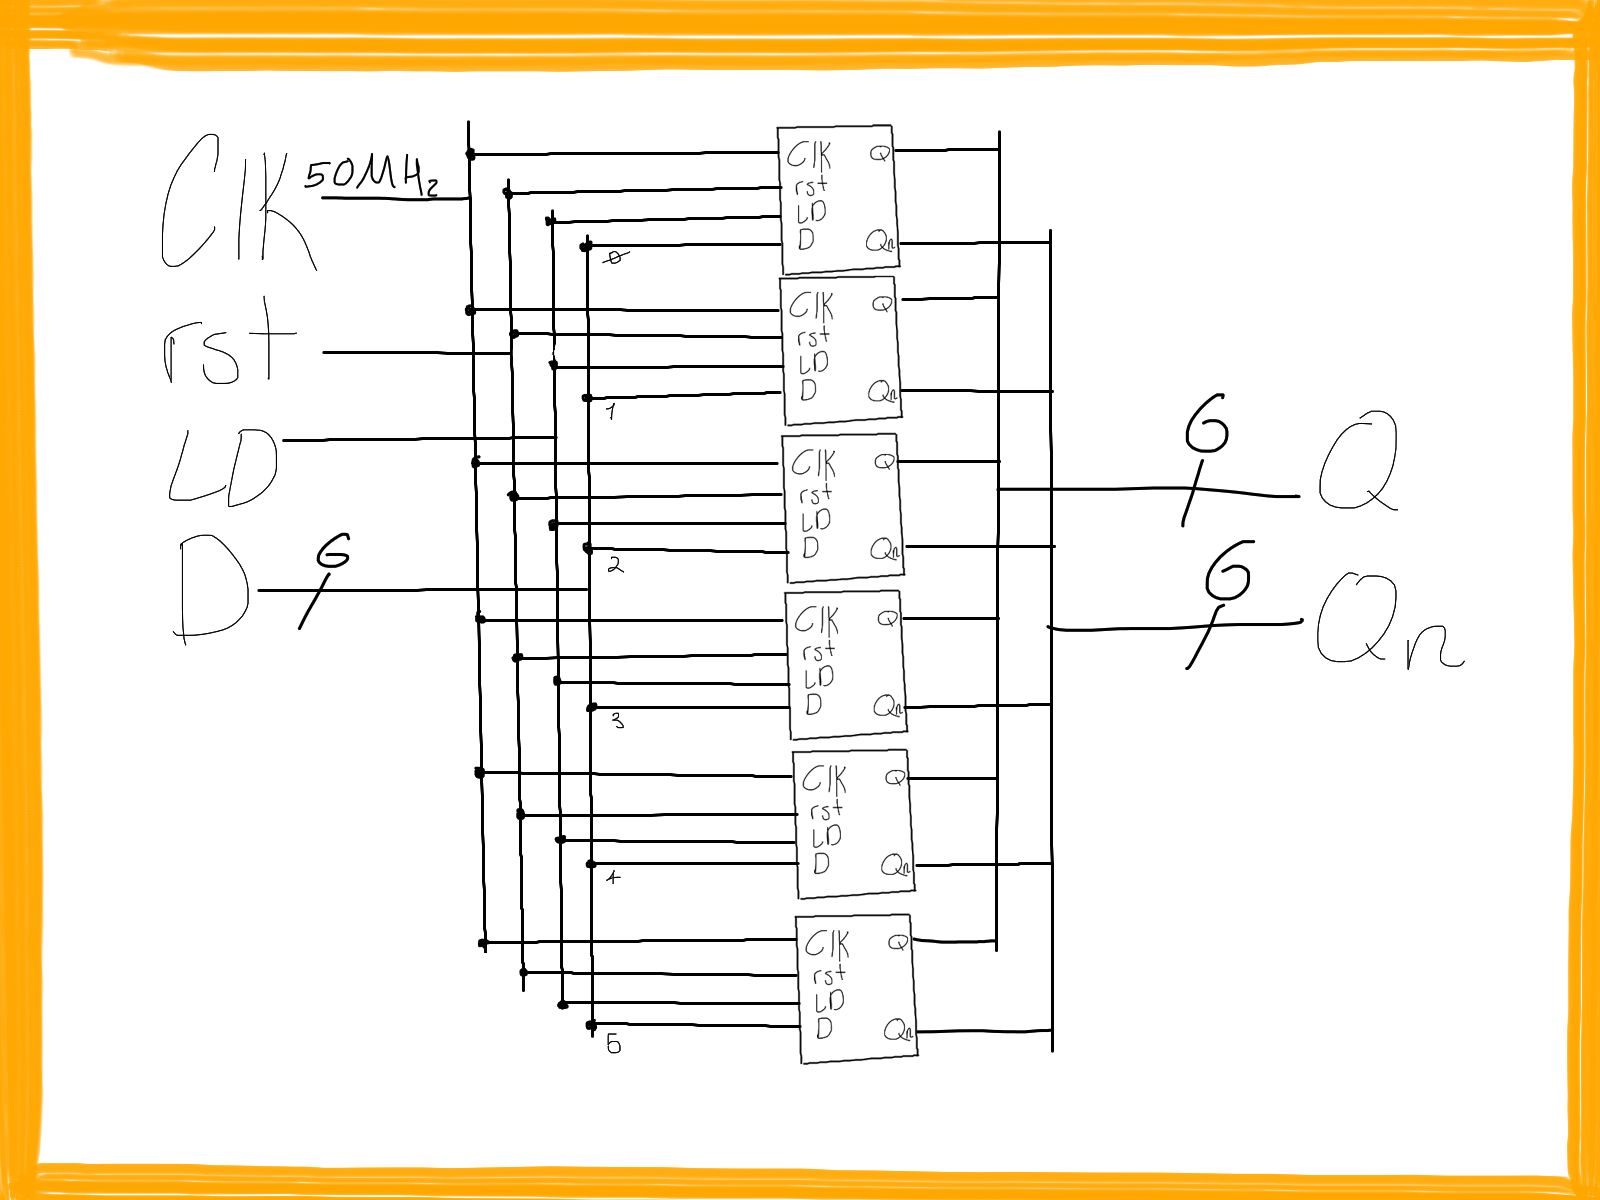 Clk 50MHz
rst
LD
D 6
Clk Q
rst
LD
D Qn
0
Clk Q
rst
LD
D Qn
1
Clk Q
rst
LD
D Qn
2
Clk Q
rst
LD
D Qn
3
Clk Q
rst
LD
D Qn
4
Clk Q
rst
LD
D Qn
5
6 Q
6 Qn